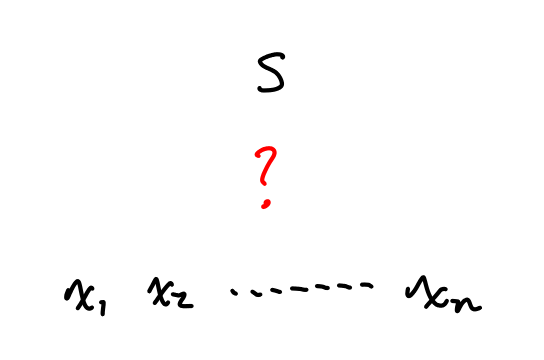 S
?
x₁ x₂ ........ xₙ